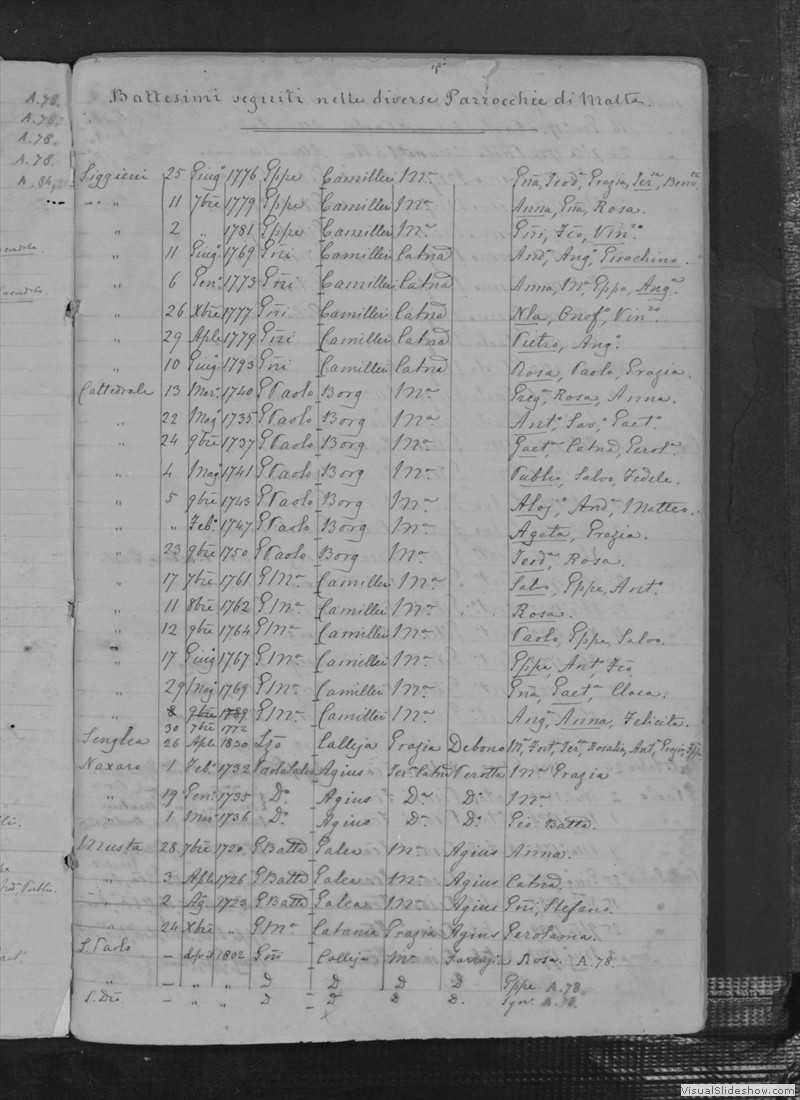 A.78.
A.78.
A.78.
A.78.
A.84.
Battesimi seguiti nelle diverse Parrocchie di Malta.
Siggieui 25 Giug.o 1776 Gppe Camilleri M.a Gña, Teod.a Grazia,
" 11 7bre 1779 Gppe Camilleri M.a Anna, Gña, Rosa.
" 2 " 1781 Gppe Camilleri M.a Gñi, Fco, Vin.zo
" 11 Giug.o 1769 Gñi Camilleri Catna And.a, Ang.o Gioachino.
" 6 Gen.o 1773 Gñi Camilleri Catna Anna, M.a, Gppa, Ang.a
" 26 Xbre 1777 Gñi Camilleri Catna Nla, Onof.o, Vin.zo
" 29 Aple 1779 Gñi Camilleri Catna Pietro, Ang.o
" 10 Giug.o 1793 Gñi Camilleri Catna Rosa, Paola, Grazia.
Cattedrale 13 Mar.o 1740 G Paolo Borg M.a Greg.a Rosa, Anna.
" 22 Mag.o 1735 G Paolo Borg M.a Ant.o Sav.o Gaet.o
" 24 9bre 1737 G Paolo Borg M.a Gaet.a Catna, Gerol.a
" 4 Mag.o 1741 G Paolo Borg M.a Publio, Salvo, Fedele.
" 5 9bre 1743 G Paolo Borg M.a Aloj.o And.a Matteo.
" " Feb.o 1747 G Paolo Borg M.a Agata, Grazia.
" 23 9bre 1750 G Paolo Borg M.a Teod.a Rosa.
" 17 7bre 1761 G M.a Camilleri M.a Salvo, Gppe, Ant.o
" 11 8bre 1762 G M.a Camilleri M.a Rosa.
" 12 9bre 1764 G M.a Camilleri M.a Paolo, Gppe, Salvo.
" 17 Giug.o 1767 G M.a Camilleri M.a Gppe, Ant.o Fco
" 29 Mag.o 1769 G M.a Camilleri M.a Gña, Gaet.a, Cloca.
" 8 9bre 1789 G M.a Camilleri M.a Ang.a, Anna, Felicita.
30 7bre 1772
Senglea 26 Aple 1800 Lzo Calleja Grazia Debono M.a Fort, Ter.a Rosalia, Ant.a
Naxaro 1 Feb.o 1732 Agius Perotta M.a Grazia
" 19 Gen.o 1735 D.o Agius D.a D.o M.a
" 1 1736 D.o Agius D.a D.o Gio. Batta.
Musta 28 7bre 1720 G Batta Galea M.a Agius Anna.
" 3 Aple 1726 G Batta Galea M.a Agius Catna.
" 2 1723 G Batta Galea M.a Agius Gñi, Stefano.
" 24 Xbre " G M.a Catania Grazia Agius Gerolama.
S. Paolo — April 1802 Gñi Calleja M.a Farrugia Rosa. A.78.
" — " " D D D D Gppe. A.78.
— " " D D D D. A.78.
VisualSlideshow.com